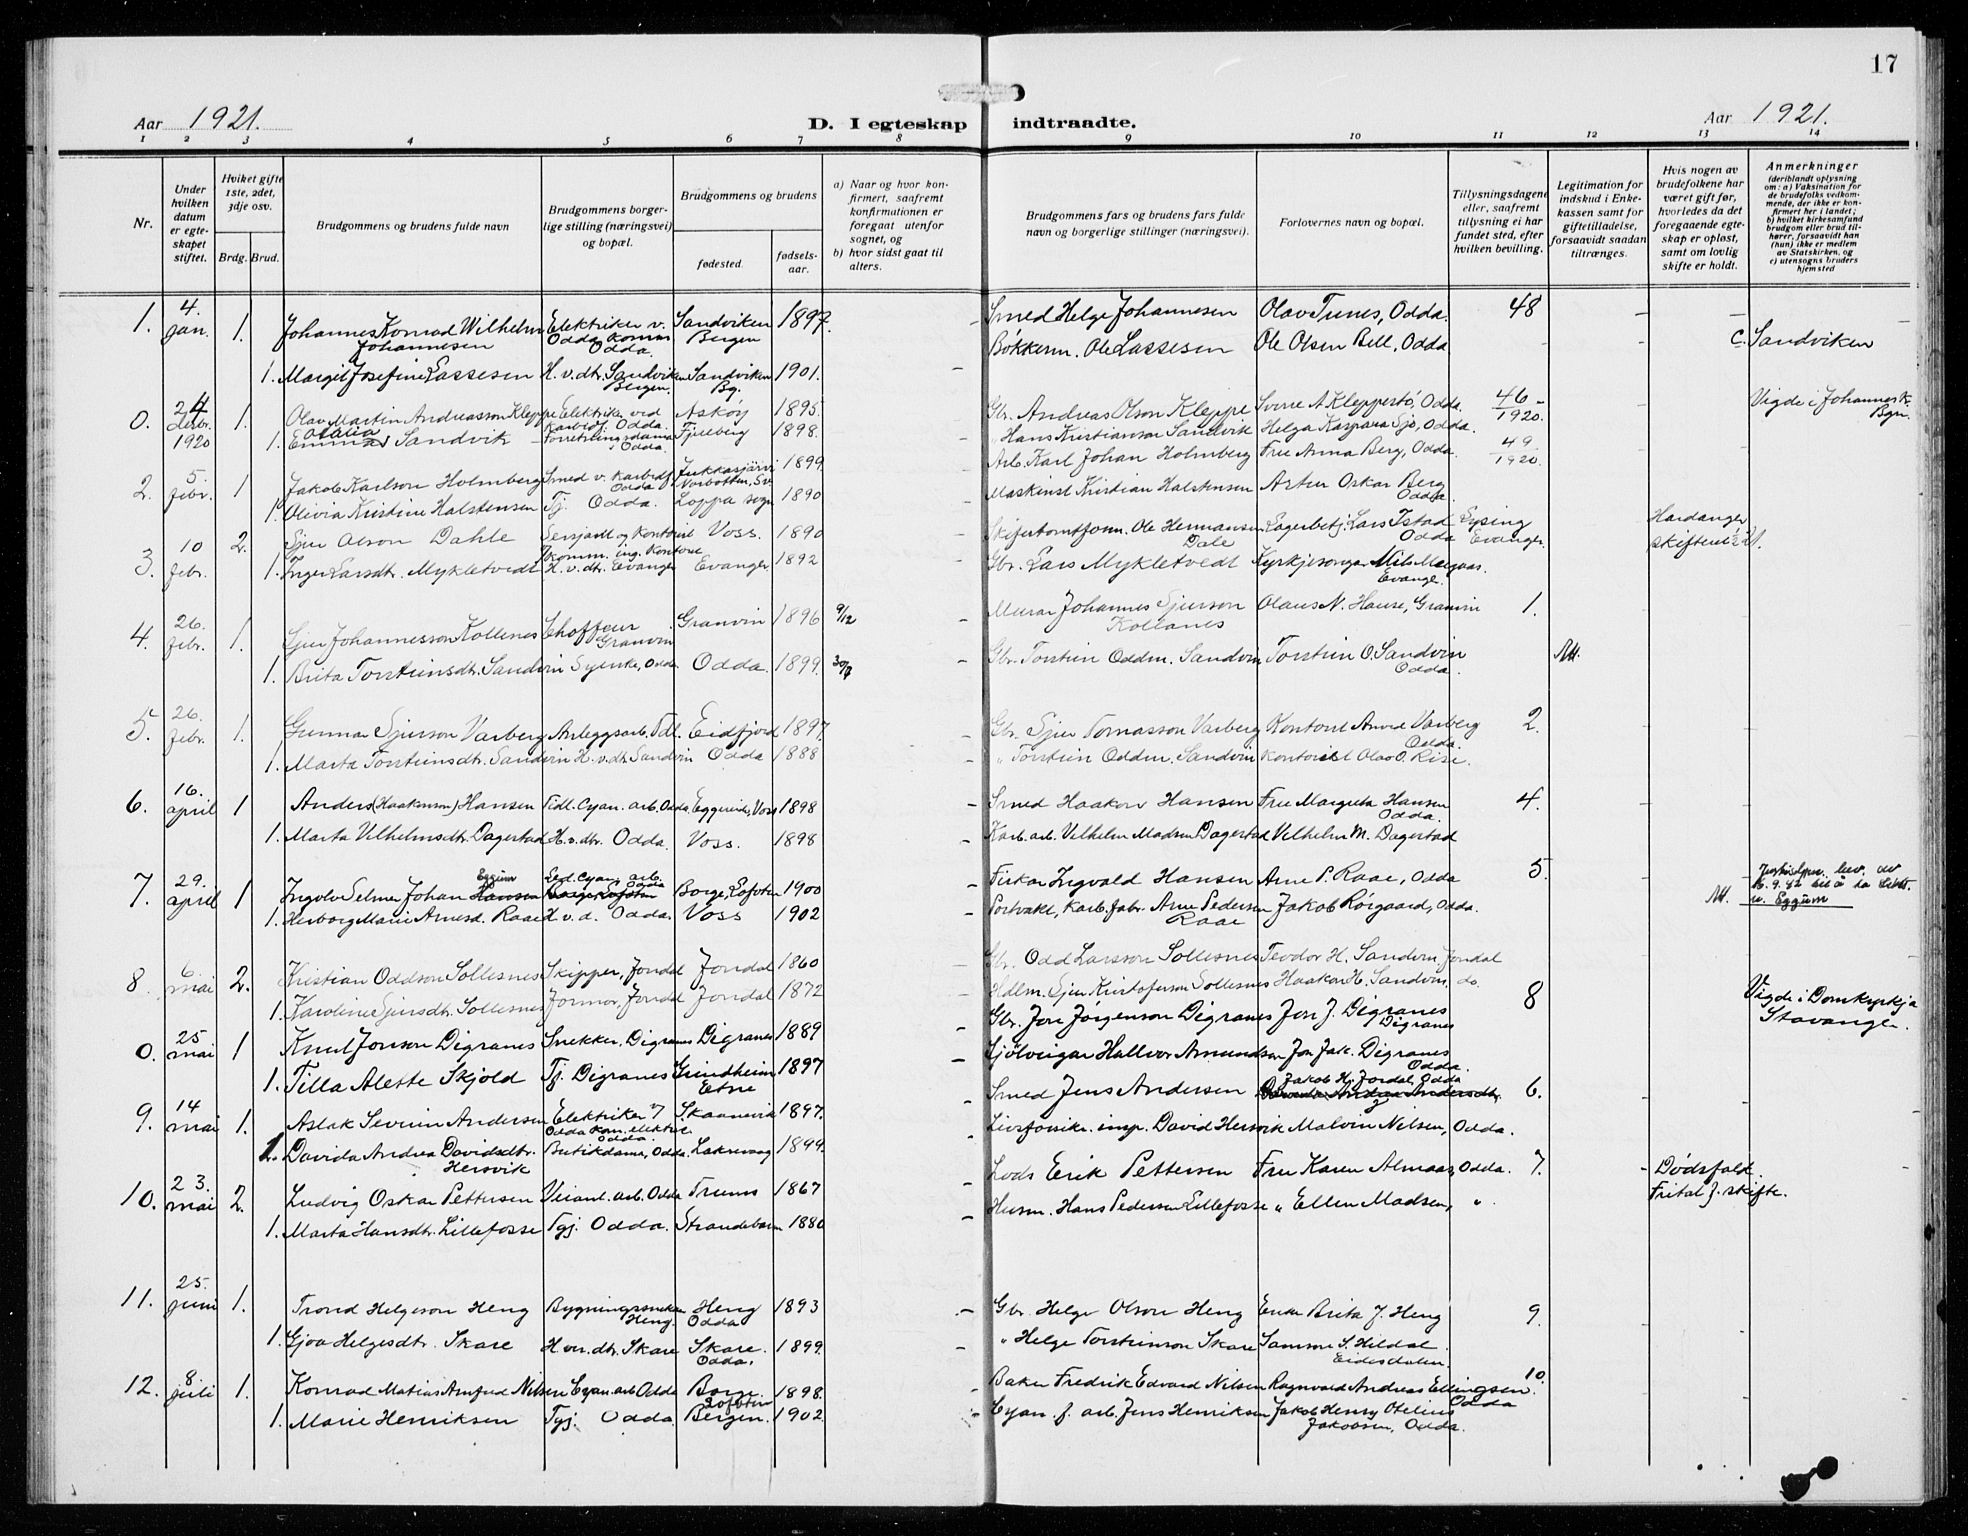 17
Aar 1921.
D. I egteskap indtraadte.
Aar 1921.
1 2 3 4 5 6 7 8 9 10 11 12 13 14
Nr.
Under hvilken datum er egteskapet stiftet.
Hviket gifte 1ste, 2det, 3dje osv.
Brdg. Brud.
Brudgommens og brudens fulde navn
Brudgommens borgerlige stilling (næringsvei) og bopæl.
Brudgommens og brudens
fødested.
fødselsaar.
a) Naar og hvor konfirmert, saafremt konfirmationen er foregaat utenfor sognet, og
b) hvor sidst gaat til alters.
Brudgommens fars og brudens fars fulde navn og borgerlige stillinger (næringsvei).
Forlovernes navn og bopæl.
Tillysningsdagene eller, saafremt tillysning ei har fundet sted, efter hvilken bevilling.
Legitimation for indskud i Enkekassen samt for giftetilladelse, forsaavidt saadan tiltrænges.
Hvis nogen av brudefolkene har været gift før, hvorledes da det foregaaende egteskap er opløst, samt om lovlig skifte er holdt.
Anmerkninger
(deriblandt oplysning om: a) Vaksination for de brudefolks vedkommende, der ikke er konfirmert her i landet; b) hvilket kirkesamfund brudgom eller brud tilhører, forsaavidt han (hun) ikke er medlem av Statskirken, og c) utensogns bruders hjemsted
1. 4. jan. 1. Johannes Konrad Wilhelm Johannesen Elektriker v. Odda komm. Odda. Sandviken Bergen 1897. Smed Helge Johannesen Olav Tunes, Odda. 48
1. Margit Josefine Lassesen H. v. dtr. Sandviken Bergen. Sandviken Bg. 1901. Bøkkerm. Ole Lassesen Ole Olsen Bell, Odda c. Sandviken
0. 24 desbr. 1920 1. Olav Martin Andreasson Kleppe Elektriker ved Karbidf. Odda. Askøy 1895. Gbr. Andreas Olson Kleppe Sverre A Kleppestø, Odda. 46 1920. Vigde i Johannesk. Bgn.
1. Emma Otalia Sandvik Forretningsdama Odda. Fjelberg 1898. " Hans Kristianson Sandvik Helga Kaspara Sjø, Odda.
2. 5. febr. 1 Jakob Karlson Holmberg Smed v. Karbidf. Odda Jukkasjärvi Norbotten, Sv. 1899 Arb. Karl Johan Holmberg Fru Anna Berg, Odda. 49 1920.
1. Olivia Kristine Halstensen Tj. Odda. Loppa sogn 1890 Maskinst Kristian Halstensen Artur Oskar Berg Odda.
3. 10 febr. 2. Sjur Olson Dahle Sersjant og Kontorist komm. ing. kontoret Voss. 1890 Skiferbrotform. Ole Hermansen Dale Lagerbetj. Lars Istad Odda Lysing Evanger. Hardanger skifterett
1. Inger Larsdtr. Mykletvedt H. v. dtr. Evanger Evanger 1892 Gbr. Lars Mykletvedt Kyrkjesongar Nils Mæquas. Evange.
4. 26. febr. 1. Sjur Johannesson Kollenes Choffeur Granvin Granvin 1896 9/12 Murar Johannes Sjurson Kollanes Olaus N. Hause, Granvin 1.
1. Brita Torsteinsdtr. Sandvin Syerske, Odda. Odda. 1899. Gbr. Torstein Oddm. Sandvin Torstein O. Sandvin Odda. Att.
5. 26. febr. 1. Gunnar Sjurson Varberg Anleggsarb. Tdl. Eidfjord 1897. Gbr. Sjur Tomasson Varberg Kontorist Anved Varberg Odda. 2.
1. Marta Torsteinsdtr. Sandvin H. v. dtr. Sandvin Odda 1888 " Torstein Oddm. Sandvin Kontorist Olav O. Rise.
6. 16. april 1 Anders (Haakonson) Hansen Tidl. Cyan. arb. Odda. Eggereide, Voss 1898 Smed Haakon Hansen Fru Margreta Hansen Odda. 4.
1. Marta Vilhelmsdtr. Dagestad H. v. dtr. Odda. Voss. 1898 Karb. arb. Vilhelm Madsen Dagestad Vilhelm M. Dagestad
7. 29. april 1 Ingolv Selmer Johan Eggum Hansen Led. Cyan. arb. Odda Borge, Lofoten Borge, Lofoten 1900 Fiskar Ingvald Hansen Arne P. Raae, Odda 5.
1. Herborg Marie Arnesd. Raae H. v. d. Odda. Voss 1902 Portvakt, Karb. fabr. Arne Pedersen Raae Jakob Rørgaard, Odda. Att. Justisdpm. bev. av 16.9.82 til å ta slektsn. Eggum
8. 6 mai 2. Kristian Oddson Sollesnes Skipper, Jondal Jondal 1860 Gbr. Odd Larsson Sollesnes Teodor H. Sandven, Jondal
1. Karoline Sjursdtr. Sollesnes Jormor, Jondal Jondal 1872 Hdlm. Sjur Kristoferson Sollesnes Haakon H. Sandven, do. 8
0. 25 mai 1 Knut Jonson Digranes Snekker, Digranes Digranes 1889 Gbr. Jon Jørgenson Digranes Jon J. Digranes Digranes Vigde i Domkyrkja Stavanger.
1. Tilla Alette Skjold Tj. Digranes Grindheim Etne 1897 Sjölveigar Hallvor Amundsen Jon Jak. Digranes Odda.
9. 14 mai 1. Aslak Severin Andersen Elektriker v Odda kom. elektr. Odda. Skaanevik 1897. Smed Jens Andersen Jakob H. Jordal, Odda 6.
1. Davida Andrea Davidsdtr. Hersvik Butikdama, Odda. Laksevaag 1899. Livsforsikr. insp. David Hersvik Malvin Nilsen, Odda.
10. 23. mai 2. Ludvig Oskar Pettersen Veiant. arb. Odda Troms 1867 Lods Erik Pettersen Fru Karen Almaas, Odda. 7. Dødsfald Frital f. skifte.
1. Marta Hansdtr. Lillefosse Tgj. Odda. Strandebarm 1880 Husm. Hans Pedersen Lillefosse " Ellen Madsen, "
11. 25. juni 1. Trond Helgeson Heng Bygningssnekker Heng. Heng Odda 1893 Gbr. Helge Olson Heng Enke Brita J. Heng 9.
1. Gjoa Helgesdtr. Skare H. v. dtr. Skare Skare. Odda. 1899. " Helge Torsteinson Skare Samson S. Hildal. Eidesdalen.
12. 8. juli 1. Konrad Matias Arnfred Nilsen Cyan. arb. Odda Borge. Lofoten 1898. Baker Fredrik Edvard Nilsen Ragnvald Andreas Ellingsen. Odda 10.
1. Marie Henriksen Tgj. Odda Bergen. 1902 Cyan. f. arb. Jens Henriksen Jakob Henry Otelius Jakobsen, Odda.